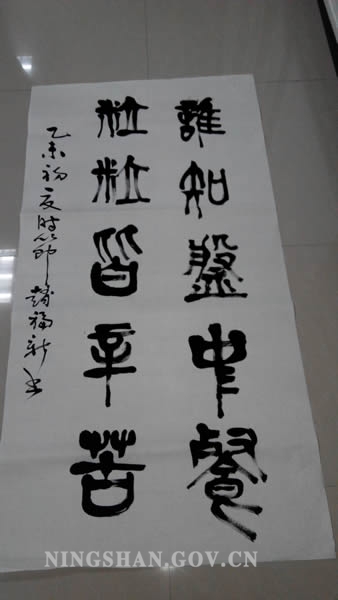 誰知盤中餐
粒粒皆辛苦
乙未初夏时 福新书
NINGSHAN.GOV.CN